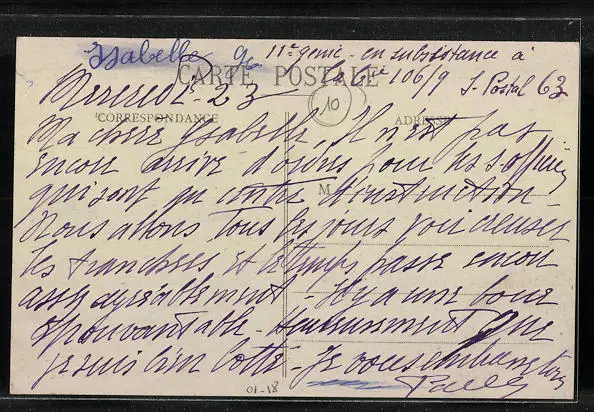 Isabelle 11e génie - en subsistance à
CARTE POSTALE
la Cie 106/9 S. Postal 63
Mercredi - 23
10
CORRESPONDANCE
ADRESSE
Ma chère Ysabelle, Il n'est pas
encore arrivé d'ordres pour les s/officiers
qui sont au centre d'instruction -
M
Nous allons tous les jours faire creuser
les tranchées et le temps passe encore
assez agréablement - Il y a une boue
épouvantable - heureusement que
je suis bien botté - Je vous embrasse tous
01-18